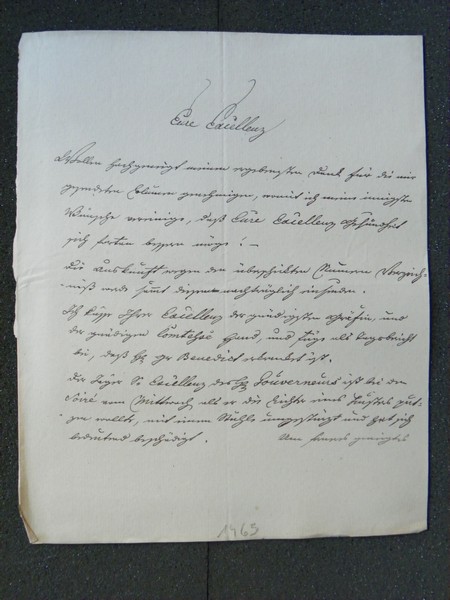 Eure Excellenz
Wollen hochgeneigt meinen ergebensten Dank für die mir
gesendeten Blumen genehmigen, womit ich meine innigsten
Wünsche vereinige, daß Eure Excellenz Gesundheit
sich fortan bessern möge! –
Die Auskunft wegen den überschickten Nummern Verzeich-
niß werde samt diesem nachträglich einsenden.
Ich küsse Ihrer Excellenz der gnädigsten Gräfin, und
der gnädigen Comtesse Hand, und füge als
bei, daß H: Benedict erkrankt ist.
Der Jäger Sr Excellenz des H: Gouverneurs ist bei der
Soiré vom Mittwoch, als er die Lichter des Lusters put-
zen wollte, mit einem Stuhle umgestürzt und hat sich
bedeutend beschädigt.
1463